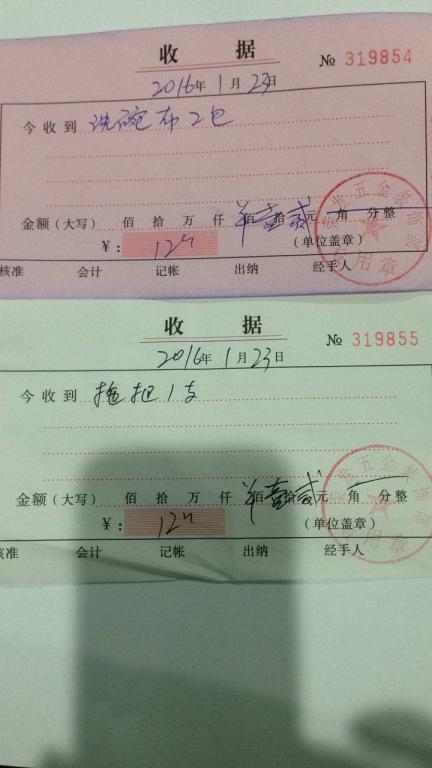 收 据
№ 319854
2016年1月23日
今收到 洗碗布2包
金额(大写) 佰 拾 万 仟 佰 壹拾贰元 角 分整
¥: 12
(单位盖章)
核准 会计 记帐 出纳 经手人
收 据
№ 319855
2016年1月23日
今收到 拖把1支
金额(大写) 佰 拾 万 仟 佰 壹拾贰元 角 分整
¥: 12
(单位盖章)
核准 会计 记帐 出纳 经手人